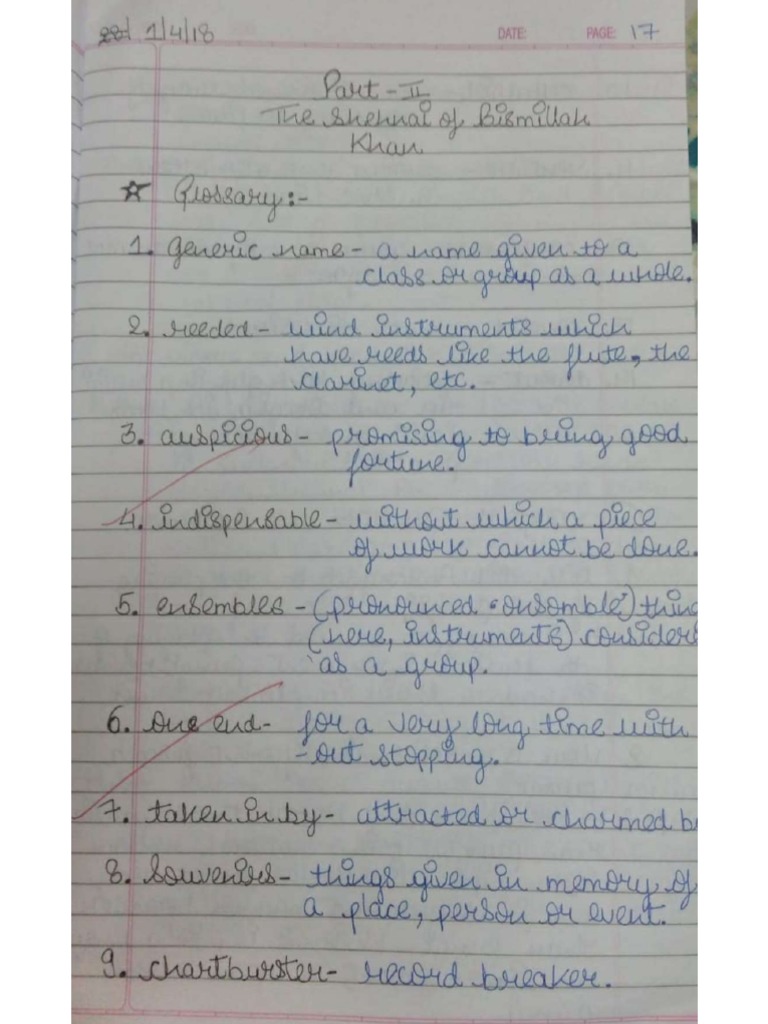 1/4/18 DATE: PAGE: 17
Part - II
The Shehnai of Bismillah
Khan
☆ Glossary:-
1. generic name - a name given to a
class or group as a whole.
2. reeded - wind instruments which
have reeds like the flute, the
clarinet, etc.
3. auspicious - promising to bring good
fortune.
4. indispensable - without which a piece
of work cannot be done.
5. ensembles - (pronounced 'onsomble') thing
(here, instruments) consider
as a group.
6. one end - for a very long time with
-out stopping.
7. taken in by - attracted or charmed b
8. souvenirs - things given in memory of
a place, person or event.
9. chartburster - record breaker.